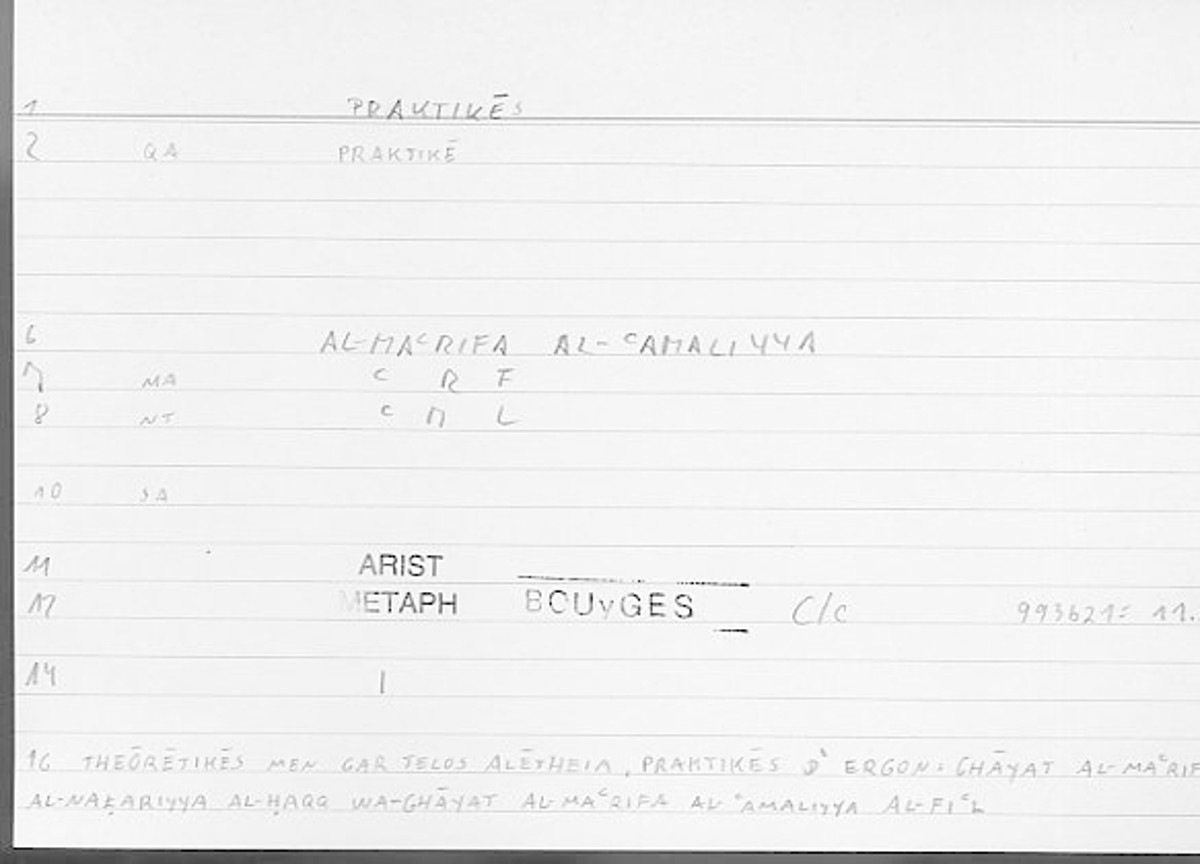 1 PRAKTIKĒS
2 QA PRAKTIKĒ
6 AL-MAᶜRIFA AL-ᶜAMALIYYA
7 MA ᶜ R F
8 NT ᶜ M L
10 SA
11 ARIST
12 METAPH BOUyGES C/c 993b21= 11.
14 1
16 THEŌRĒTIKĒS MEN GAR TELOS ALĒTHEIA, PRAKTIKĒS D' ERGON: GHĀYAT AL-MAᶜRIF
AL-NAẒARIYYA AL-ḤAQQ WA-GHĀYAT AL-MAᶜRIFA AL-ᶜAMALIYYA AL-FIᶜL